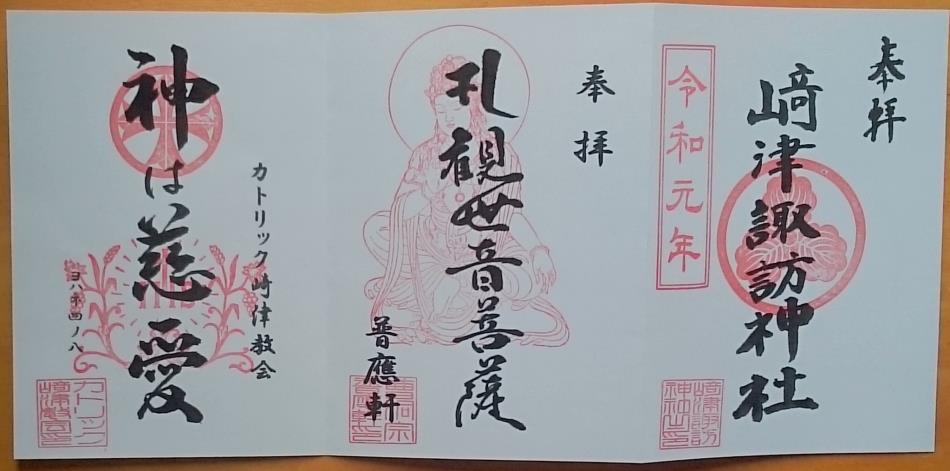 奉拝
﨑津諏訪神社
令和元年
奉拝
礼観世音菩薩
普應軒
カトリック﨑津教会
神は慈愛
ヨハ第四ノ八
﨑津諏訪
神社之印
カトリック